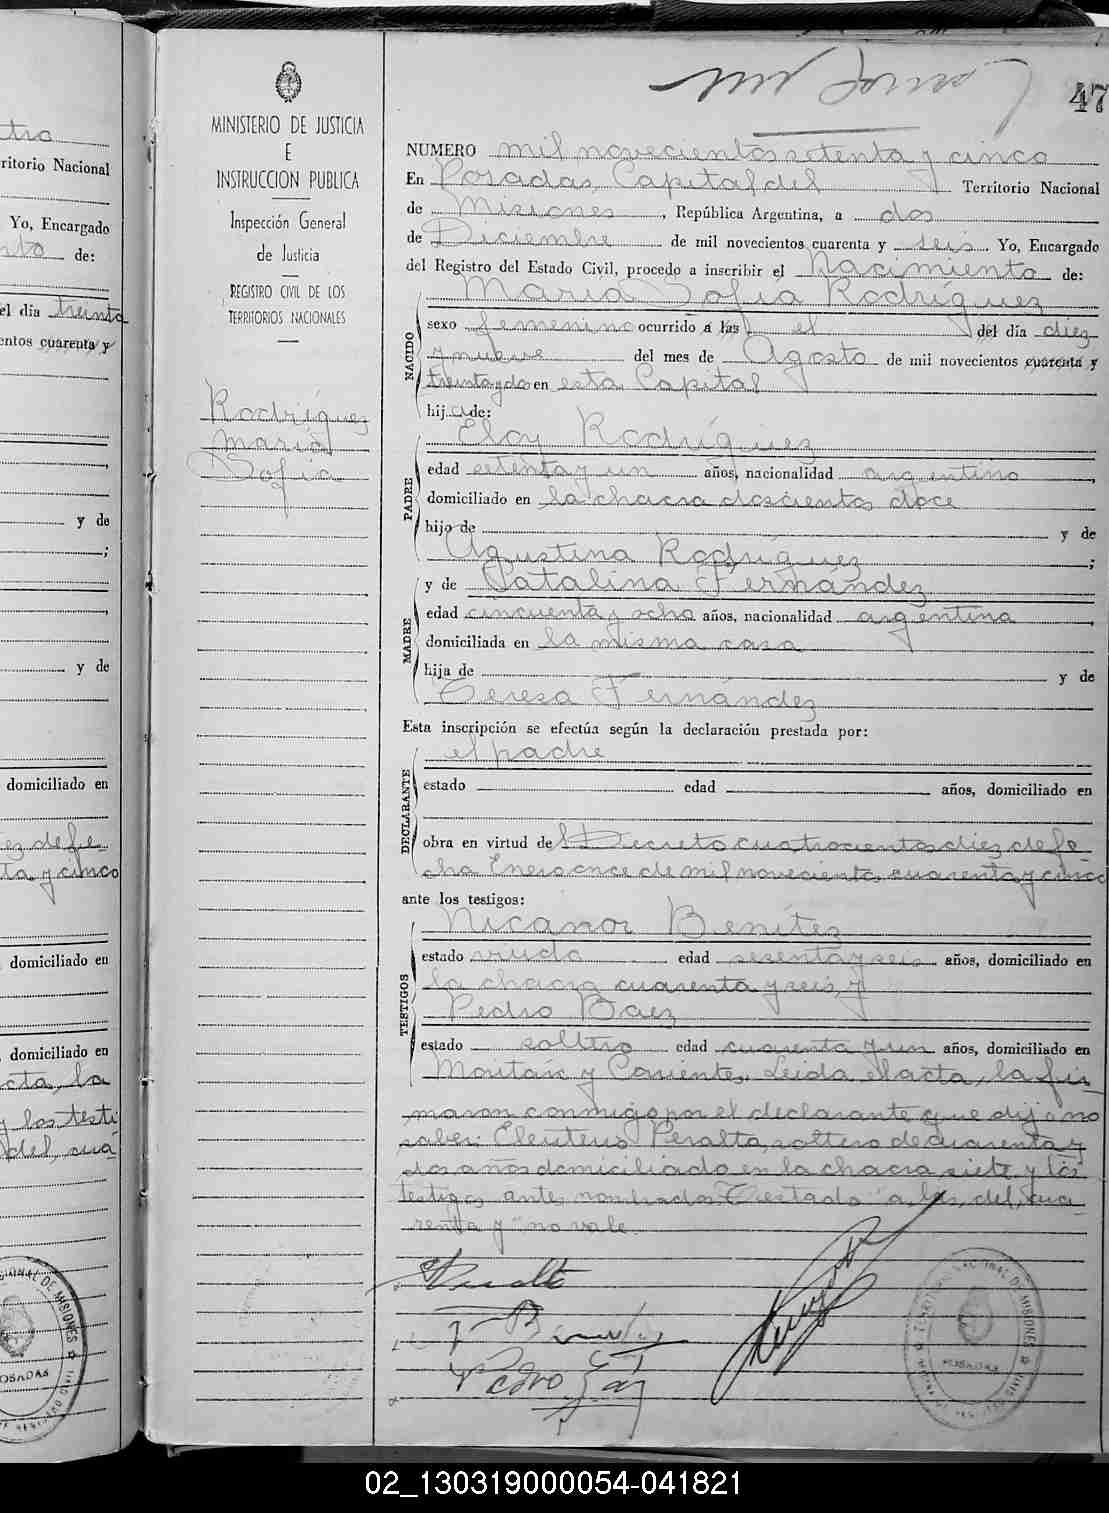 47
tro
ritorio Nacional
Yo, Encargado
nto de:
el día treinta
entos cuarenta y
y de
y de
domiciliado en
ez de fe
ta y cinco
domiciliado en
domiciliado en
acta, la
y los testi
del, cua
MINISTERIO DE JUSTICIA
E
INSTRUCCION PUBLICA
Inspección General
de Justicia
REGISTRO CIVIL DE LOS
TERRITORIOS NACIONALES
Rodríguez
María
Sofía
NUMERO mil novecientos setenta y cinco
En Posadas, Capital del Territorio Nacional
de Misiones, República Argentina, a dos
de Diciembre de mil novecientos cuarenta y seis. Yo, Encargado
del Registro del Estado Civil, procedo a inscribir el Nacimiento de:
María Sofía Rodríguez
NACIDO
sexo femenino ocurrido a las el del día diez
y nueve del mes de Agosto de mil novecientos cuarenta y
treinta y dos en esta Capital
hija de:
Eloy Rodríguez
PADRE
edad setenta y un años, nacionalidad argentino,
domiciliado en la chacra doscientos doce
hijo de y de
Agustina Rodríguez;
y de Catalina Fernández
MADRE
edad cincuenta y ocho años, nacionalidad argentina
domiciliada en la misma casa
hija de y de
Teresa Fernández
Esta inscripción se efectúa según la declaración prestada por:
el padre
DECLARANTE
estado edad años, domiciliado en
obra en virtud del Decreto cuatrocientos diez de fe
cha Enero once de mil novecientos cuarenta y cinco
ante los testigos:
Nicanor Benítez
TESTIGOS
estado viudo edad sesenta y seis años, domiciliado en
la chacra cuarenta y seis, y
Pedro Baez
estado soltero edad cuarenta y un años, domiciliado en
y Corrientes. Leída el acta, la fir-
maron conmigo por el declarante que dijo no
saber: Eleuterio Peralta, soltero de cuarenta y
dos años domiciliado en la chacra siete y los
testigos antes nombrados. Testado "a las, del, cua-
renta y" no vale.
Peralta
Pedro Baez
TERRITORIO NACIONAL DE MISIONES
POSADAS
IONAL DE MISIONES
POSADAS
02_130319000054-041821